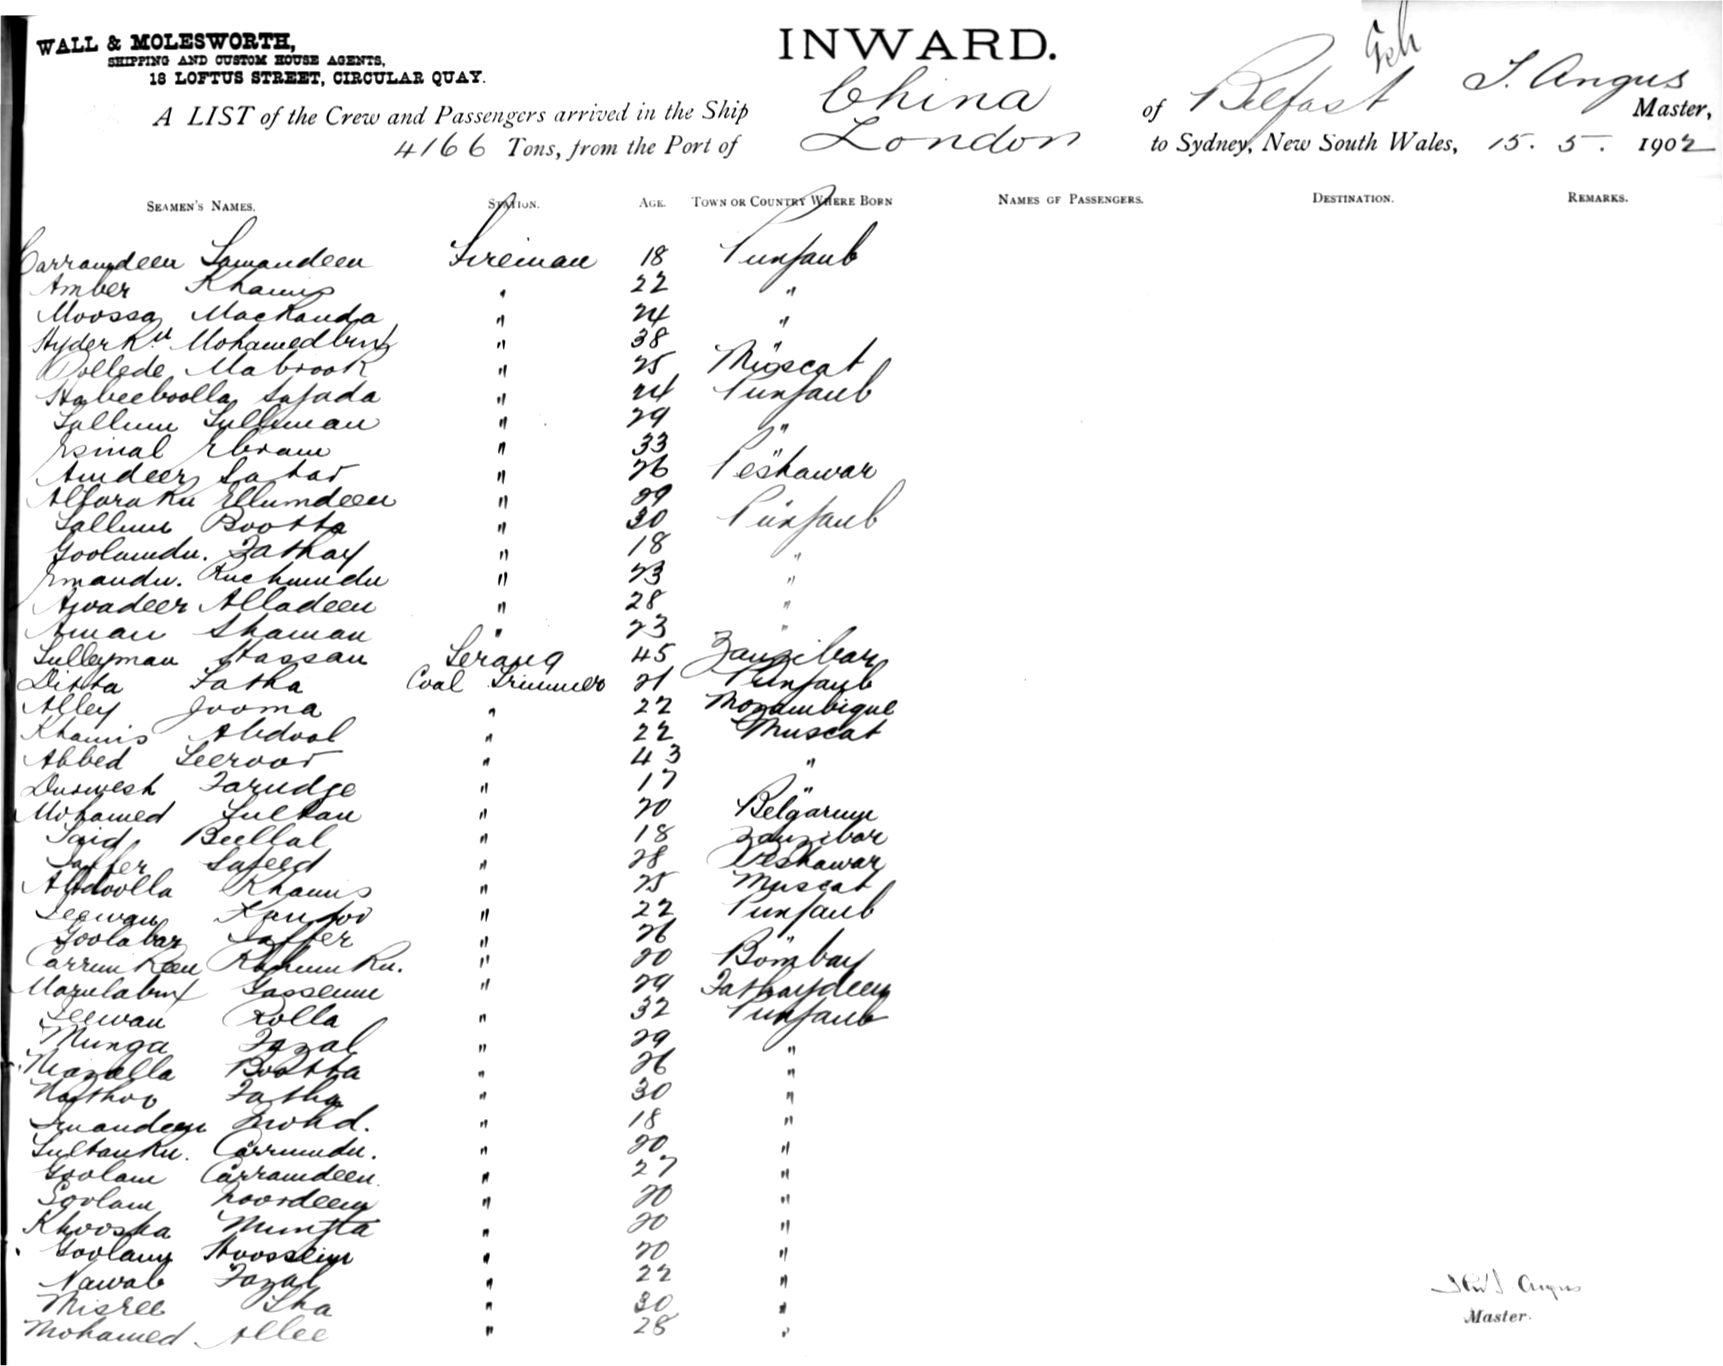 WALL & MOLESWORTH,
SHIPPING AND CUSTOM HOUSE AGENTS,
18 LOFTUS STREET, CIRCULAR QUAY.
INWARD.
A LIST of the Crew and Passengers arrived in the Ship China of Belfast J. Angus Master,
4166 Tons, from the Port of London to Sydney, New South Wales, 15. 5. 1902
SEAMEN'S NAMES. STATION. AGE. TOWN OR COUNTRY WHERE BORN NAMES OF PASSENGERS. DESTINATION. REMARKS.
Carramdeen Lamandeen Fireman 18 Punjaub
Amber Khamis " 22 "
Moossa Mackanda " 24 "
Hyder Kn Mohamedbux " 38 "
Mabrook " 25 Muscat
Habeeboolla Sajada " 24 Punjaub
Sallum Sulleman " 29 "
Esmal Ebram " 33 "
Amdeen Satar " 26 Peshawar
Ellumdeen " 29 "
Sallum Bootta " 30 Punjaub
Goolamdu. Fathay " 18 "
Emandu. Ruchmudu " 23 "
Alladeen " 28 "
Aman Shaman " 23 "
Sulleyman Hassan Serang 45 Zanzibar
Ditta Fatha Coal Trimmer 21 Punjaub
Alley Jooma " 22 Mozambique
Khamis Abdool " 22 Muscat
Abbed Seeroor " 43 "
Durwesh Farudge " 17 "
Mohamed Sultan " 20 Belgarum
Said Bullal " 18 Zanzibar
Jaffer Sajeed " 28 Peshawar
Abdoolla Khamis " 25 Muscat
Jeewan " 22 Punjaub
Goolabar Jaffer " 26 "
Carrum Keen Rahum Kn. " 20 Bombay
Gassemu " 29 Fathaydeen
Jeewan Rolla " 32 Punjaub
Munga Fazal " 29 "
Niazalla Bootta " 26 "
Nathoo Fatha " 30 "
Imandeen Mohd. " 18 "
Sultan Kn. Carrumdu. " 20 "
Goolam Carramdeen " 27 "
Goolam Noordeen " 20 "
Khooska Munjta " 20 "
Goolam Hoossein " 20 "
Nawab Fazal " 22 "
Misree Sha " 30 "
Mohamed Allee " 28 "
Angus
Master.